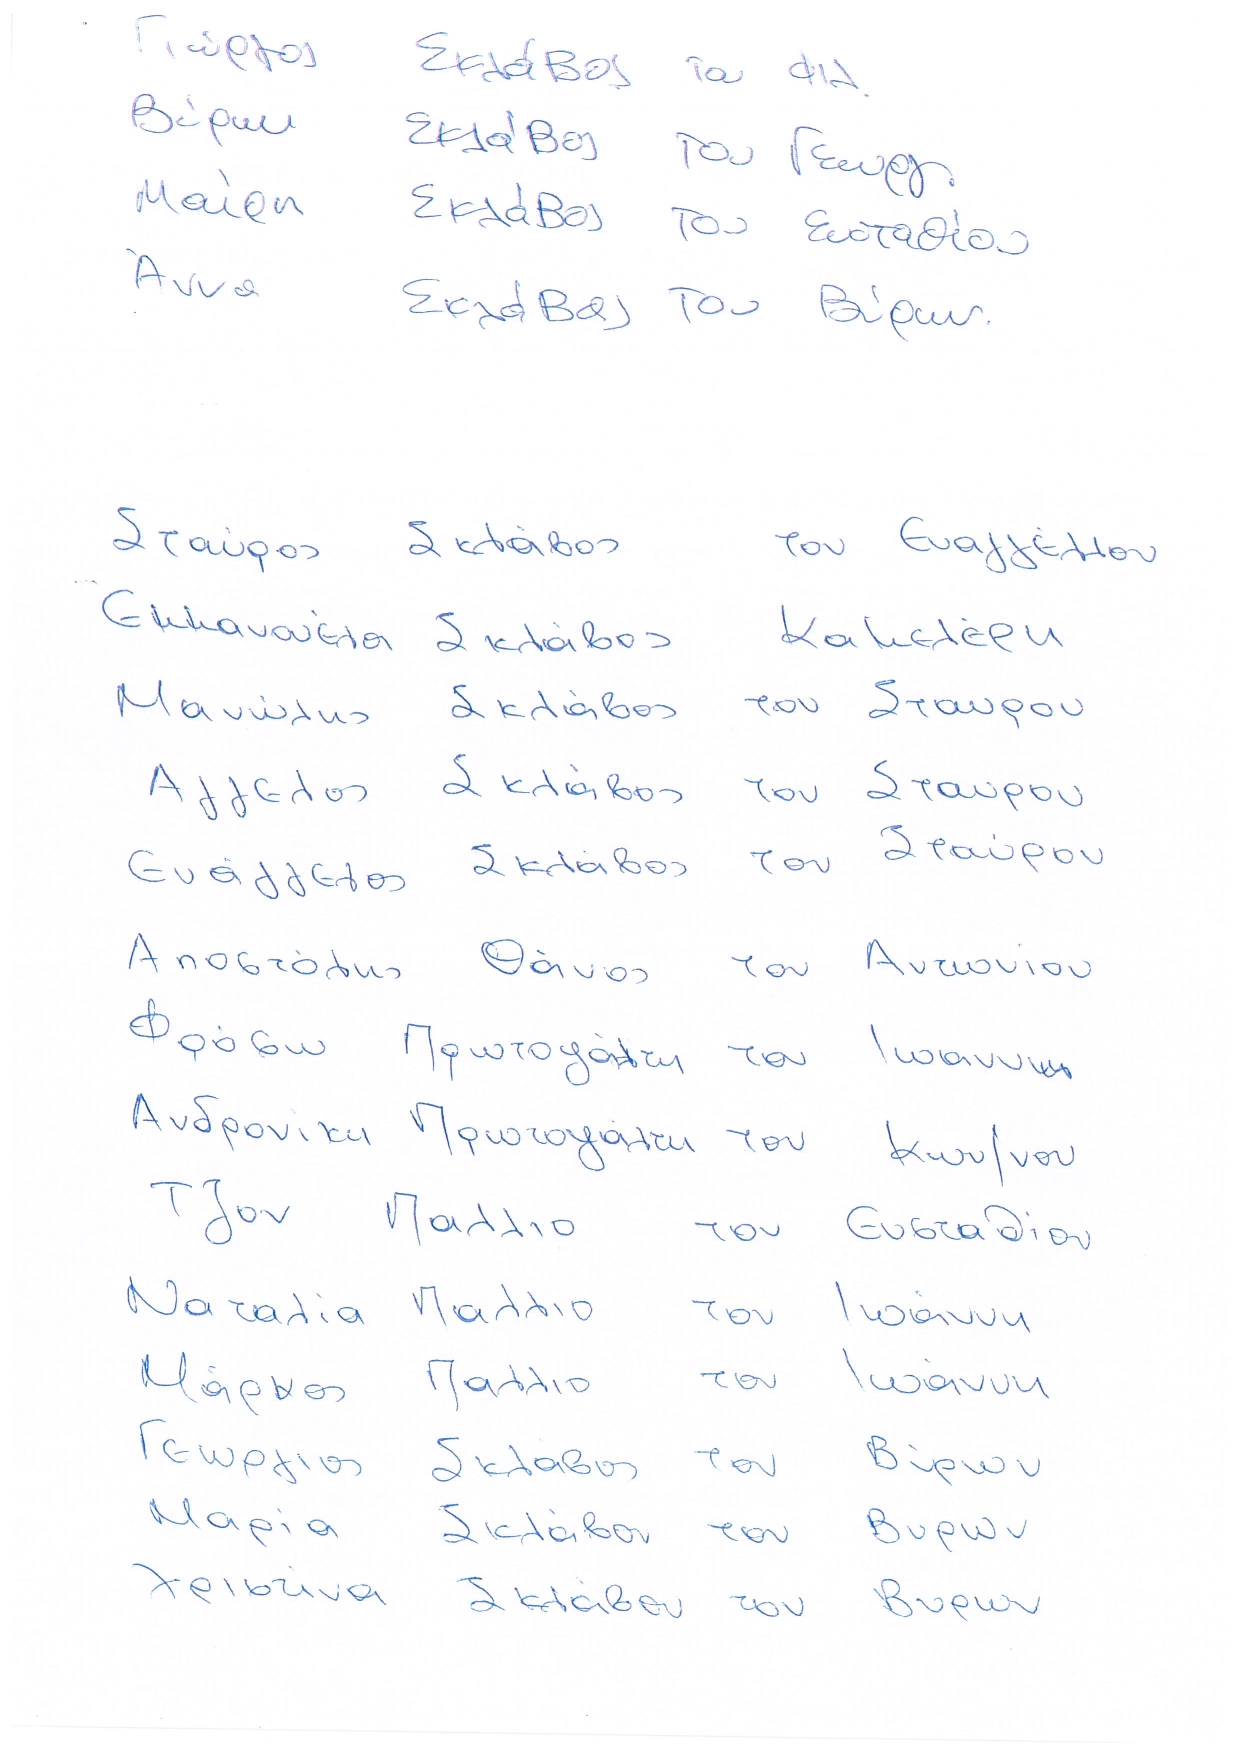 Γιώργος Σκλάβος του Φιλ.
Βύρων Σκλάβος του Γεωργ.
Μαίρη Σκλάβος του Ευσταθίου
Άννα Σκλάβος του Βύρων.
Σταύρος Σκλάβος του Ευαγγέλλου
Εμμανουέλα Σκλάβος Καμελέρη
Μανώλης Σκλάβος του Σταυρου
Αγγελος Σκλάβος του Σταυρου
Ευάγγελος Σκλάβος του Σταύρου
Αποστόλης Θάνος του Αντωνίου
Φρόσω Πρωτοψάλτη του Ιωαννη
Ανδρονίκη Πρωτοψάλτη του Κων/νου
Τζον Παλλιο του Ευσταθίου
Ναταλία Παλλιο του Ιωάννη
Μάρκος Παλλιο του Ιωάννη
Γεωργιος Σκλάβος του Βύρων
Μαρία Σκλάβου του Βυρων
Χριστίνα Σκλάβου του Βυρων